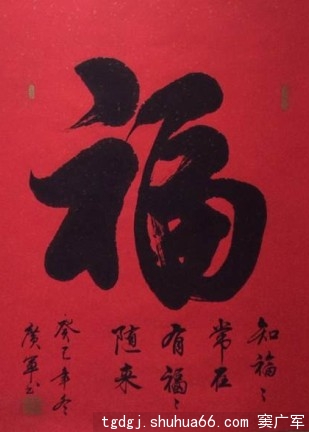 福
知福〻
常在
有福〻
随来
癸巳年冬
广军书
tgdgj.shuhua66.com 窦广军